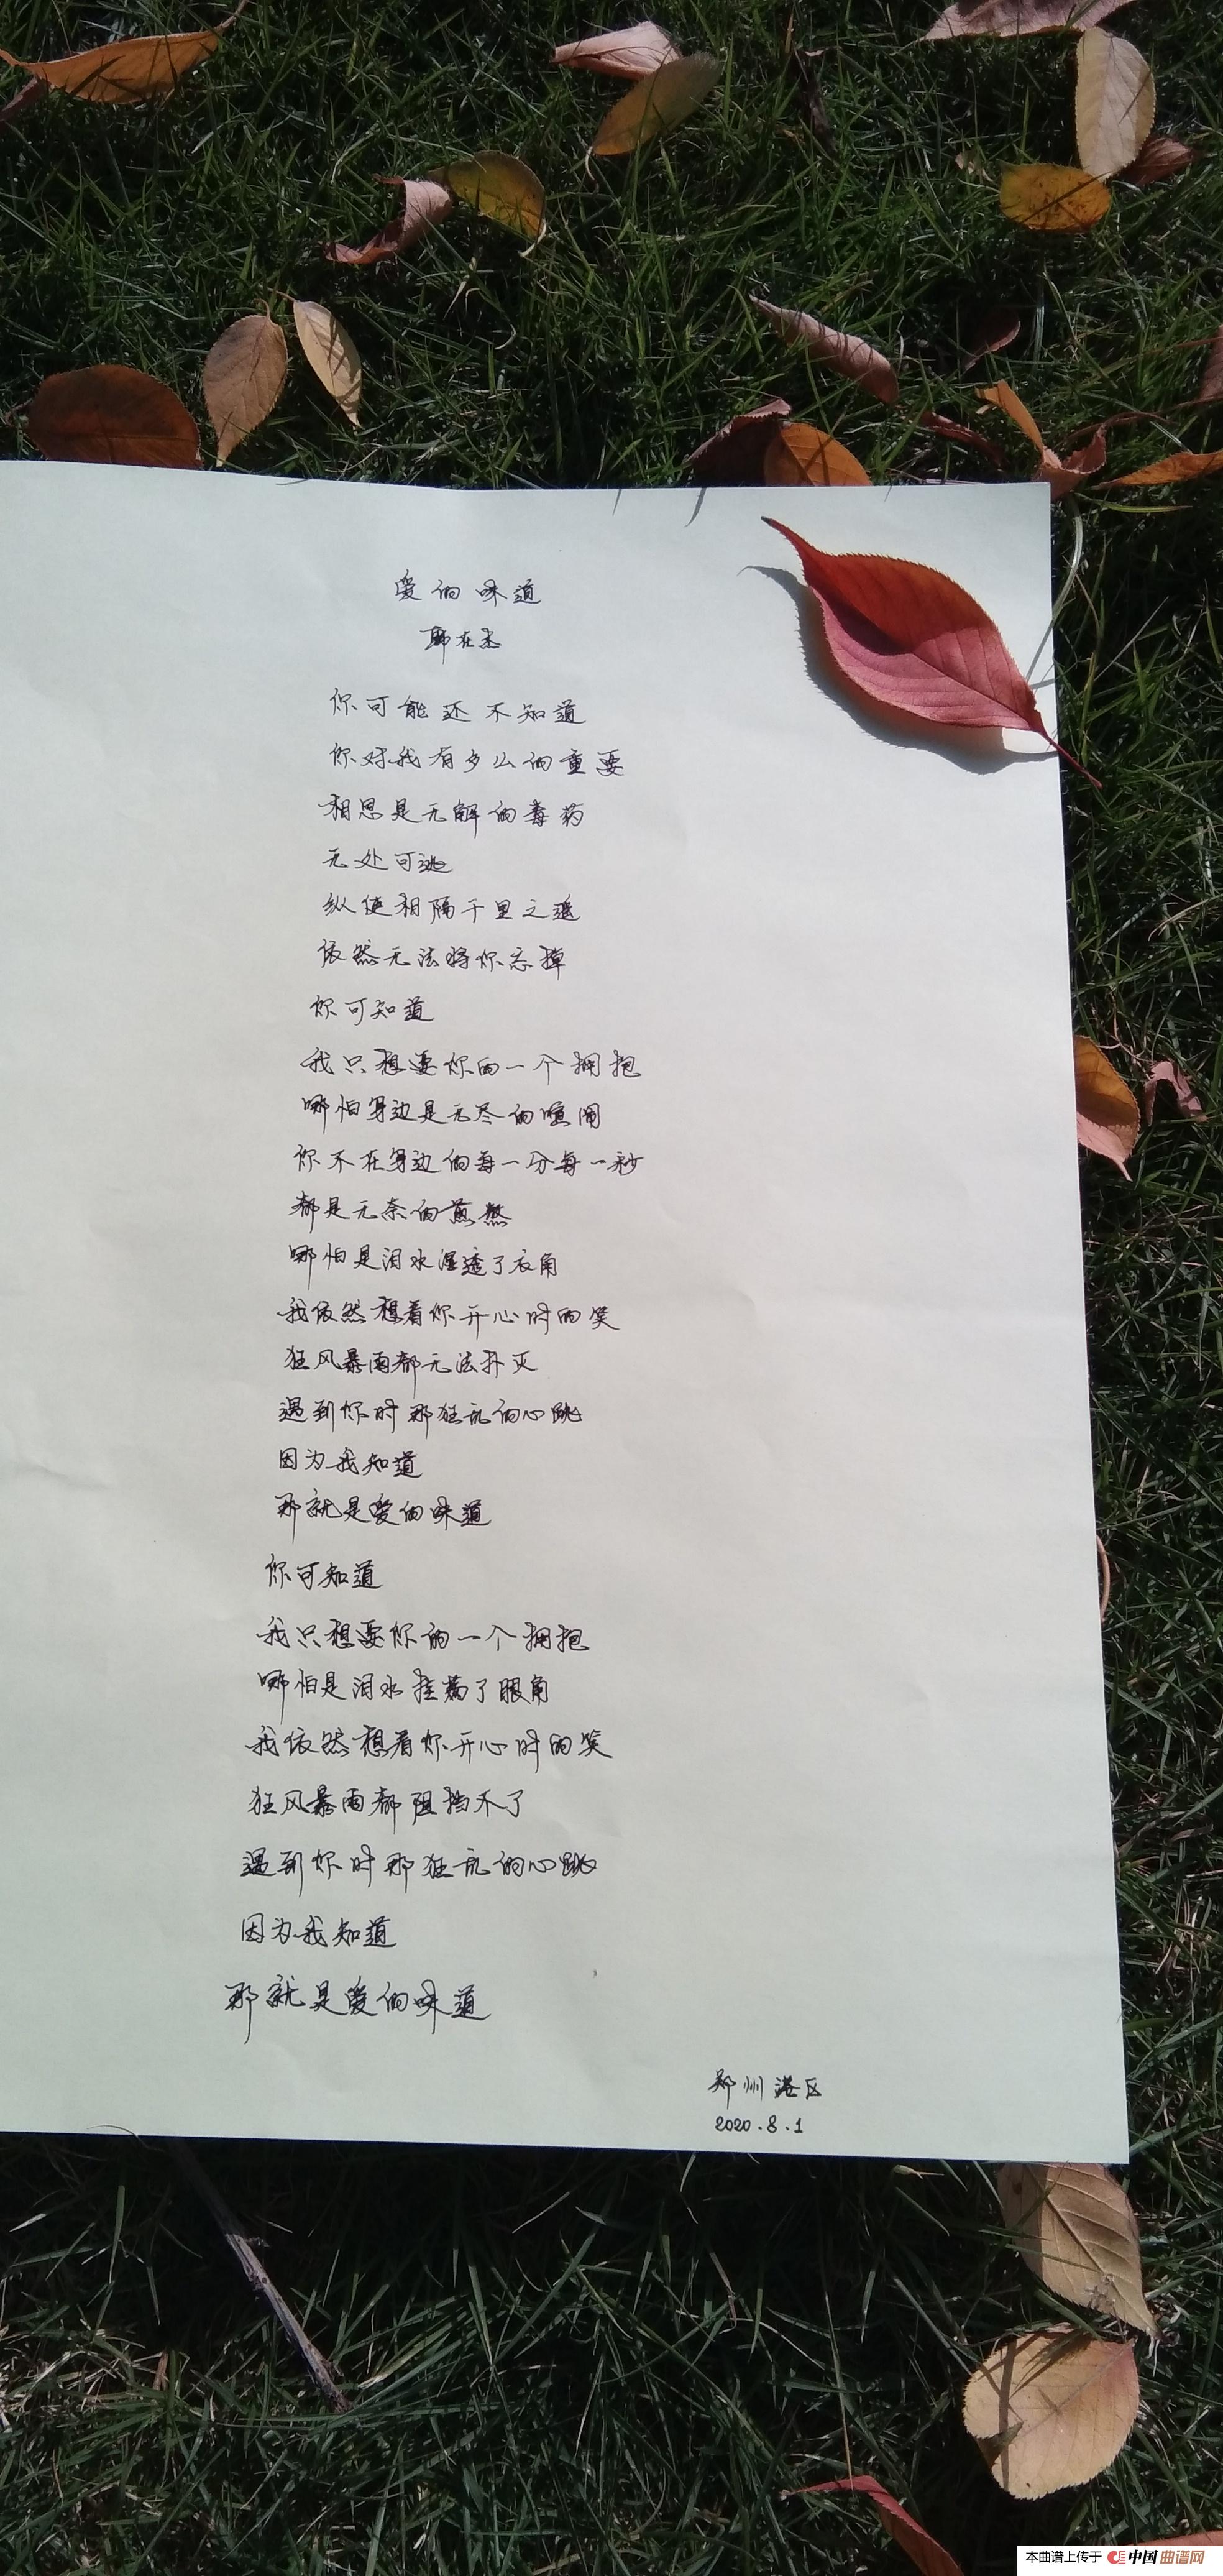 爱的味道
郭在杰
你可能还不知道
你对我有多么的重要
相思是无解的毒药
无处可逃
纵使相隔千里之遥
依然无法将你忘掉
你可知道
我只想要你的一个拥抱
哪怕身边是无尽的喧闹
你不在身边的每一分每一秒
都是无奈的煎熬
哪怕是泪水湿透了衣角
我依然想着你开心时的笑
狂风暴雨都无法扑灭
遇到你时那狂乱的心跳
因为我知道
那就是爱的味道
你可知道
我只想要你的一个拥抱
哪怕是泪水挂满了眼角
我依然想着你开心时的笑
狂风暴雨都阻挡不了
遇到你时那狂乱的心跳
因为我知道
那就是爱的味道
郑州港区
2020.8.1
本曲谱上传于 中国曲谱网